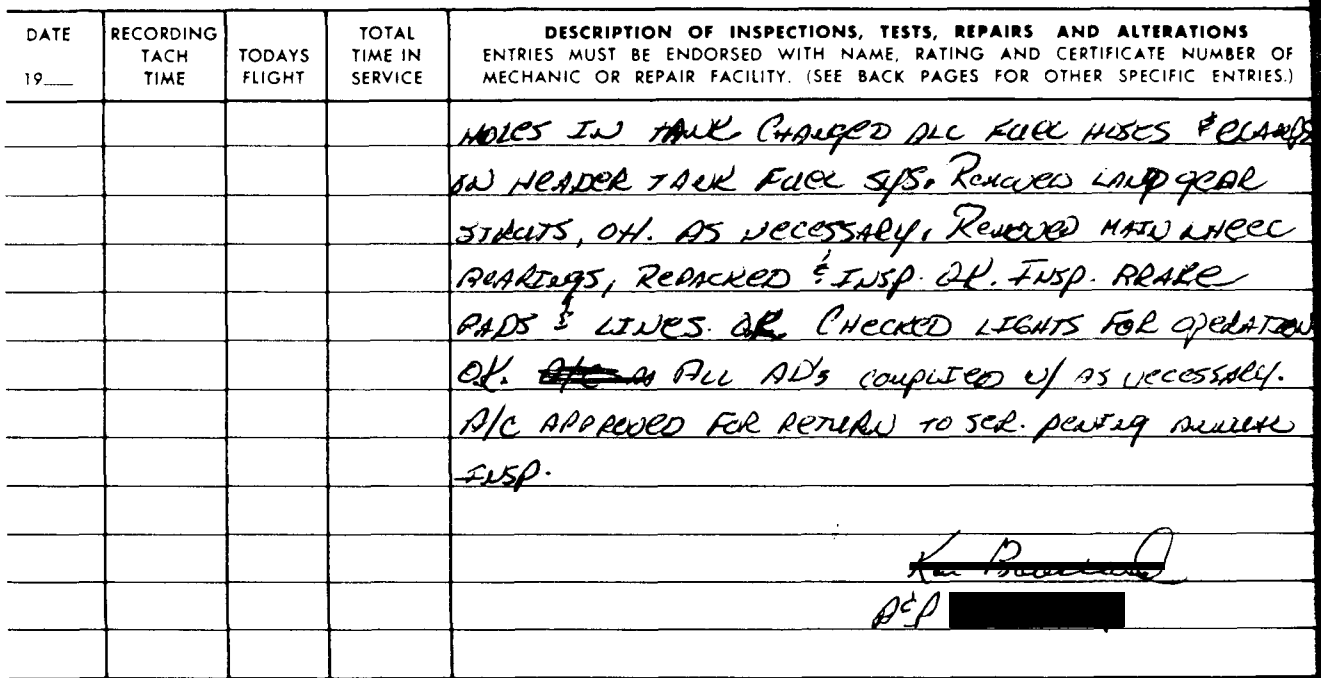 DATE
19
RECORDING
TACH
TIME
TODAYS
FLIGHT
TOTAL
TIME IN
SERVICE
DESCRIPTION OF INSPECTIONS, TESTS, REPAIRS AND ALTERATIONS
ENTRIES MUST BE ENDORSED WITH NAME, RATING AND CERTIFICATE NUMBER OF
MECHANIC OR REPAIR FACILITY. (SEE BACK PAGES FOR OTHER SPECIFIC ENTRIES.)
HOLES IN TANK CHANGED ALL FUEL HOSES & CLAMPS
IN HEADER TANK FUEL SYS. REMOVED LAND GEAR
STRUTS, OH. AS NECESSARY, REMOVED MAIN WHEEL
BEARINGS, REPACKED & INSP. OK. INSP. BRAKE
PADS & LINES. OK CHECKED LIGHTS FOR OPERATION
OK. ALL AD'S COMPLIED W/ AS NECESSARY.
A/C APPROVED FOR RETURN TO SER. PENTING ANNUAL
INSP.
A&P